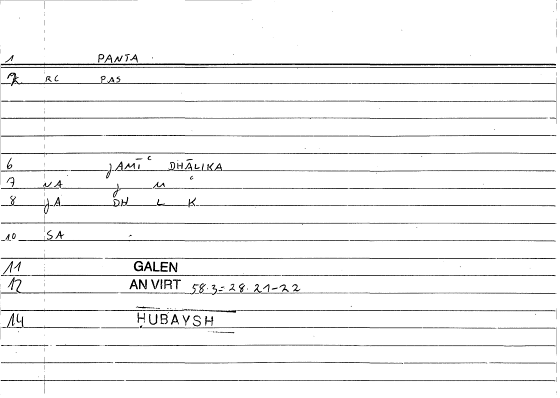 1 PANTA
2 RC PAS
6 jAMĪʿ DHĀLIKA
7 NA j M ʿ
8 jA DH L K
10 SA -
11 GALEN
12 AN VIRT 58.3=28.21-22
14 ḤUBAYSH